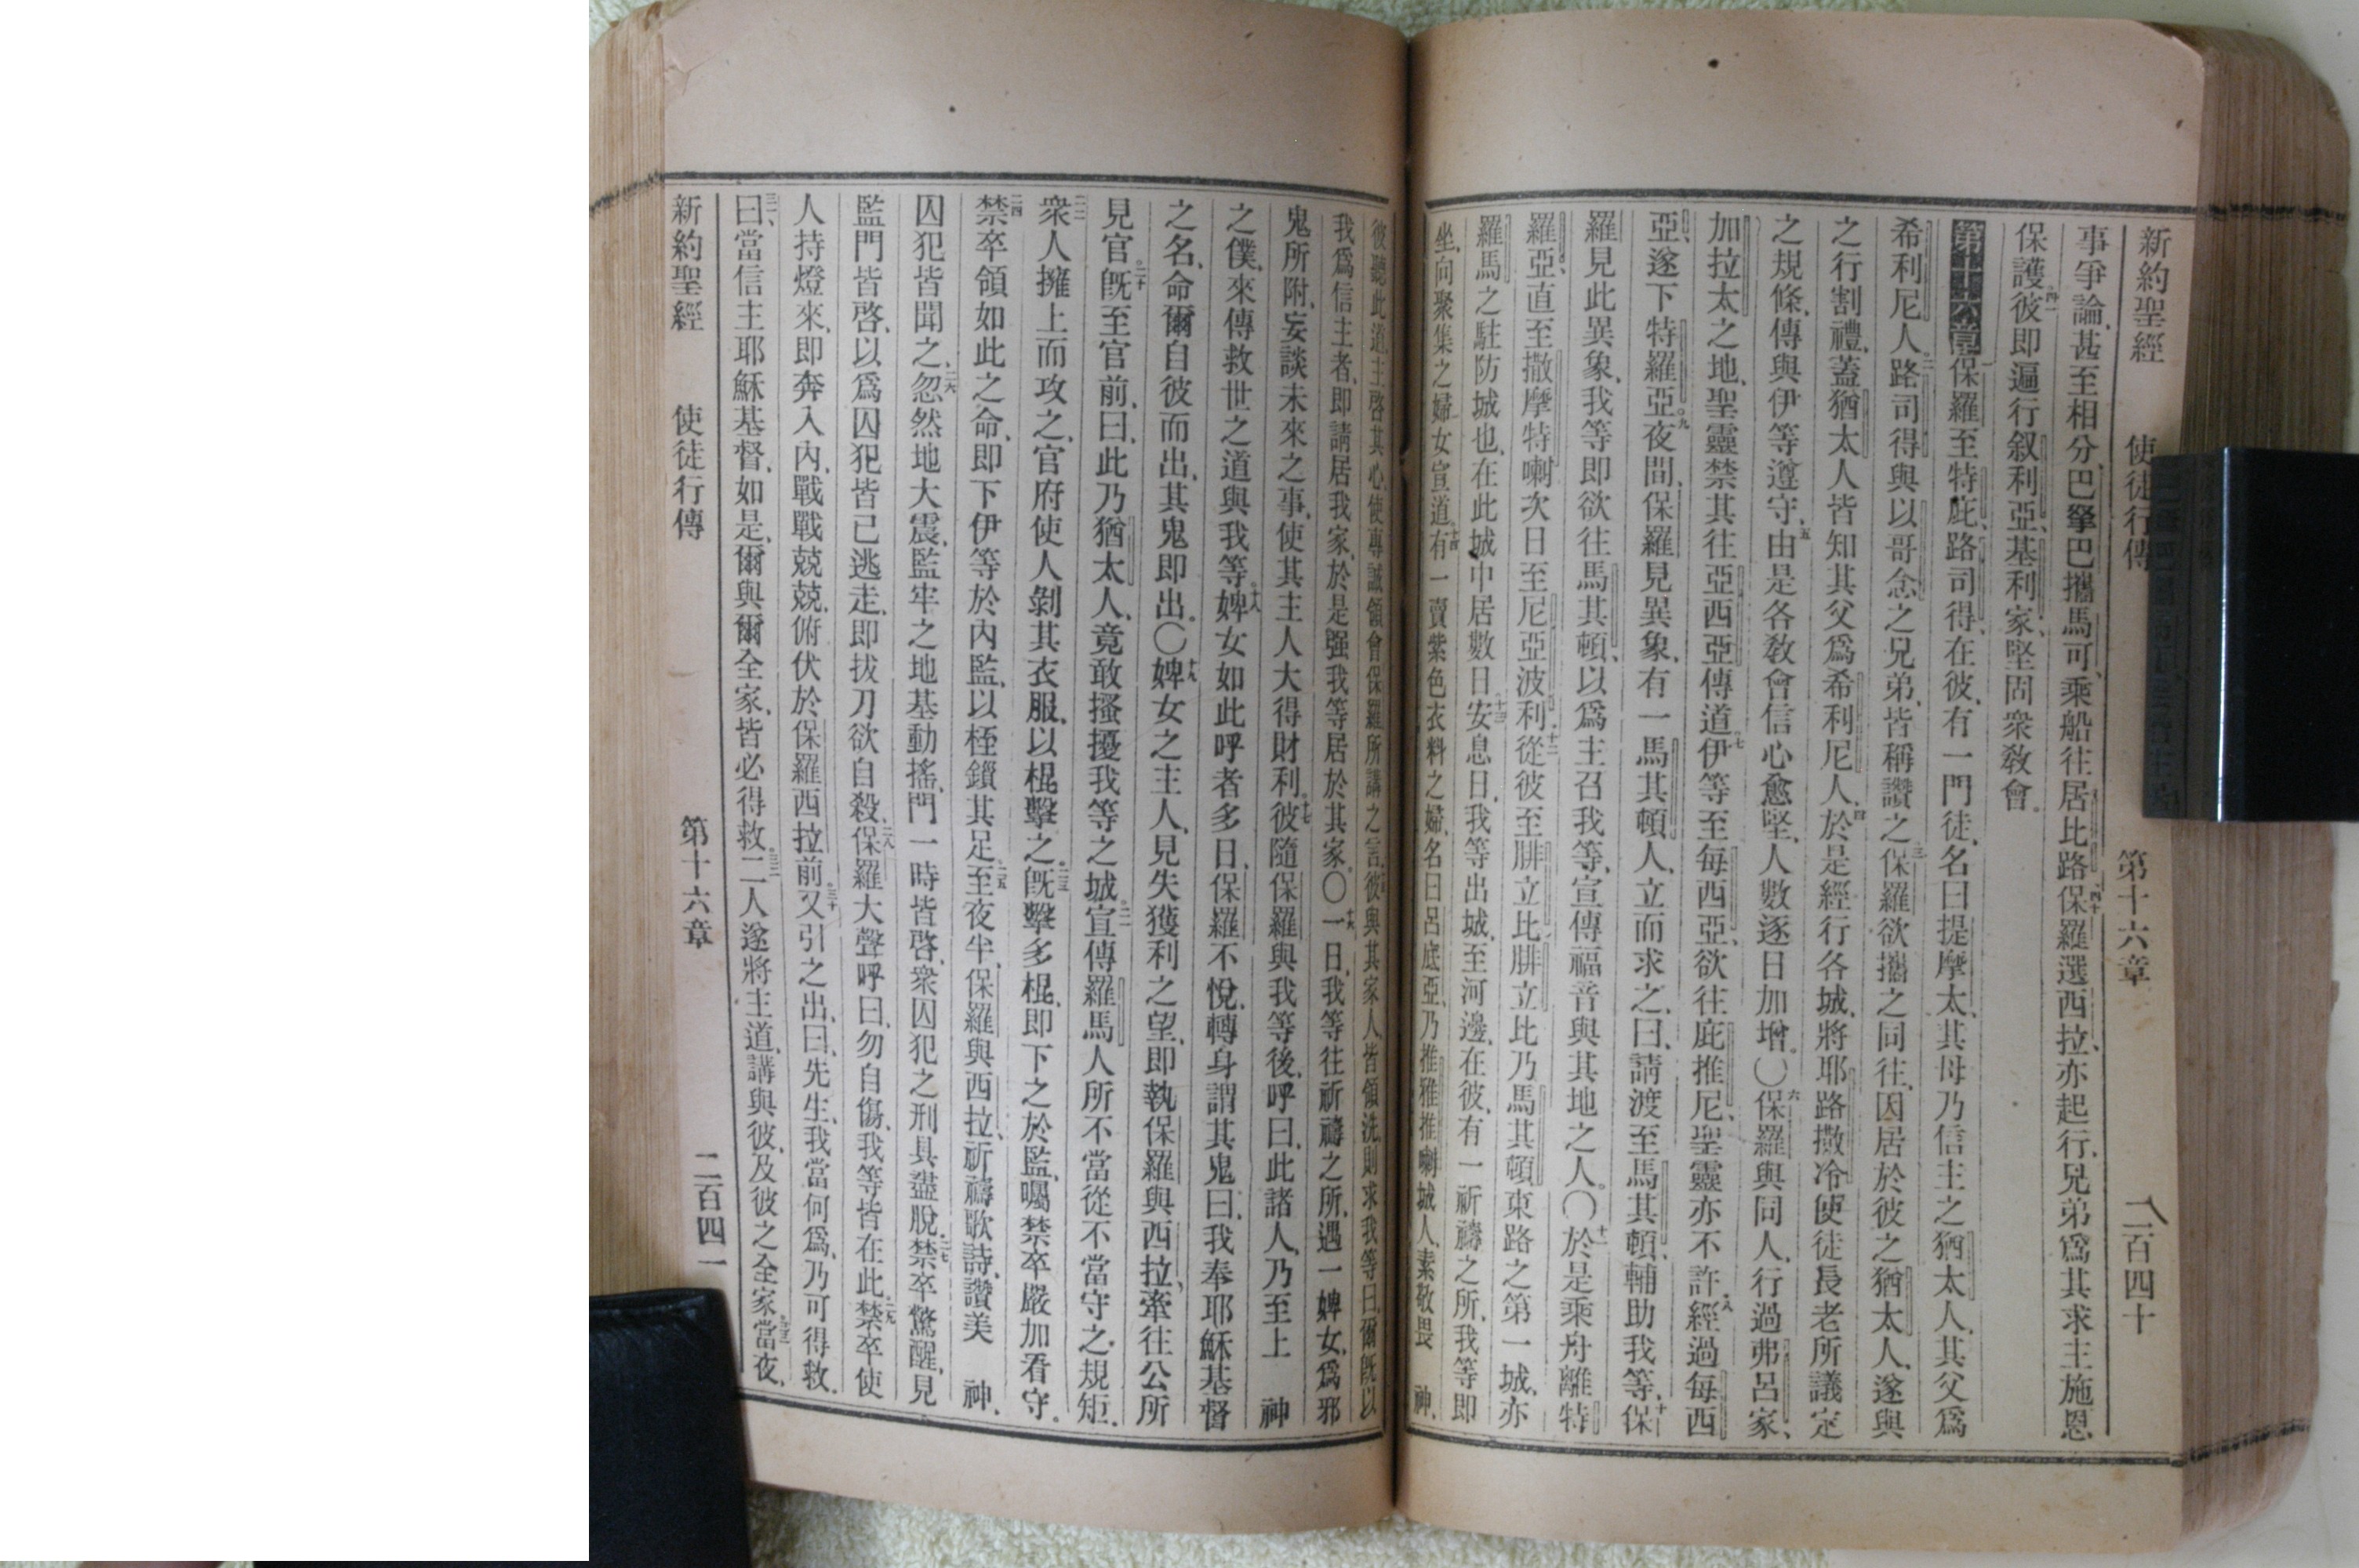 新約聖經 使徒行傳 第十六章 二百四十
事爭論、甚至相分、巴拏巴攜馬可、乘船往居比路、四十保羅選西拉、亦起行、兄弟爲其求主施恩
保護彼、四一即遍行叙利亞、基利家、堅固衆教會。
第十六章 一保羅至特庇、路司得、在彼、有一門徒、名曰提摩太、其母乃信主之猶太人、其父爲
希利尼人。二路司得與以哥念之兄弟、皆稱讚之、三保羅欲攜之同往、因居於彼之猶太人、遂與
之行割禮、蓋猶太人皆知其父爲希利尼人、四於是經行各城、將耶路撒冷使徒長老所議定
之規條、傳與伊等遵守、五由是各教會信心愈堅、人數逐日加增。〇六保羅與同人、行過弗呂家、
加拉太之地、聖靈禁其往亞西亞傳道、七伊等至每西亞、欲往庇推尼、聖靈亦不許、八經過每西
亞、遂下特羅亞。九夜間、保羅見異象、有一馬其頓人、立而求之、曰、請渡至馬其頓、輔助我等、十保
羅見此異象、我等即欲往馬其頓、以爲主召我等、宣傳福音與其地之人。〇十一於是乘舟離特
羅亞、直至撒摩特喇、次日至尼亞波利、十二從彼至腓立比、腓立比乃馬其頓東路之第一城、亦
羅馬之駐防城也、在此城中居數日、十三安息日、我等出城、至河邊、在彼有一祈禱之所、我等即
坐、向聚集之婦女宣道、十四有一賣紫色衣料之婦、名曰呂底亞、乃推雅推喇城人、素敬畏 神、
彼聽此道、主啓其心、使專誠領會保羅所講之言、彼與其家人、皆領洗、則求我等曰、爾既以
我爲信主者、即請居我家、於是强我等居於其家。〇十六一日、我等往祈禱之所、遇一婢女、爲邪
鬼所附、妄談未來之事、使其主人大得財利、十七彼隨保羅與我等後、呼曰、此諸人、乃至上 神
之僕、來傳救世之道與我等、十八婢女如此呼者多日、保羅不悅、轉身謂其鬼曰、我奉耶穌基督
之名、命爾自彼而出、其鬼即出。〇十九婢女之主人、見失獲利之望、即執保羅與西拉、牽往公所
見官、二十既至官前、曰、此乃猶太人、竟敢搔擾我等之城、二一宣傳羅馬人所不當從不當守之規矩、
二二衆人擁上而攻之、官府使人剝其衣服、以棍擊之、二三既擊多棍、即下之於監、囑禁卒嚴加看守。
二四禁卒領如此之命、即下伊等於內監、以桎鎖其足、二五至夜半、保羅與西拉、祈禱歌詩、讚美 神、
囚犯皆聞之、二六忽然地大震、監牢之地基動搖、門一時皆啓、衆囚犯之刑具盡脫、二七禁卒驚醒、見
監門皆啓、以爲囚犯皆已逃走、即拔刀欲自殺、二八保羅大聲呼曰、勿自傷、我等皆在此、二九禁卒使
人持燈來、即奔入內、戰戰兢兢、俯伏於保羅西拉前、三十又引之出、曰、先生、我當何爲、乃可得救、
三一曰、當信主耶穌基督、如是、爾與爾全家、皆必得救。三二二人遂將主道、講與彼、及彼之全家、三三當夜、
新約聖經 使徒行傳 第十六章 二百四一